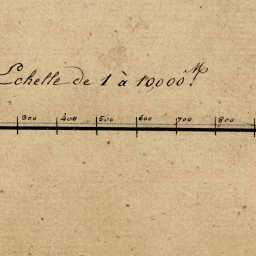 Echelle de 1 à 10,000.M
300 400 500 600 700 800